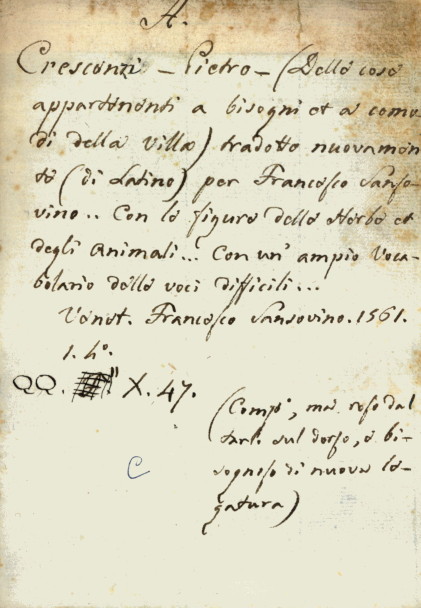 A.
Crescenzi - Pietro - (Delle cose
appartenenti a bisogni et a como-
di della villa) tradotto nuovamen
te (di Latino) per Francesco Sanso-
vino.. Con le figure delle Herbe et
degli Animali... Con un' ampio Voca-
bolario delle voci difficili...
Venet. Francesco Sansovino. 1561.
1. 4º.
QQ. X. 47.
(Comp:, ma roso dal
tarl. sul dorso, e bi-
sognoso di nuova le-
gatura)
C